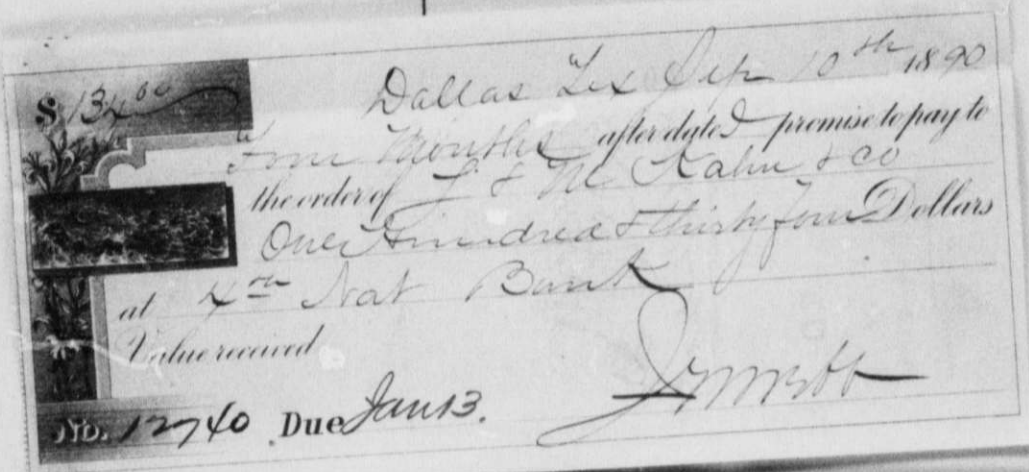 $134.00 Dallas Tex Sep 10th 1890
Four Months after date I promise to pay to
the order of L & M Kahn & Co
One Hundred & thirty four Dollars
at 4th Nat Bank
Value received
No. 12740 Due Jan 13.